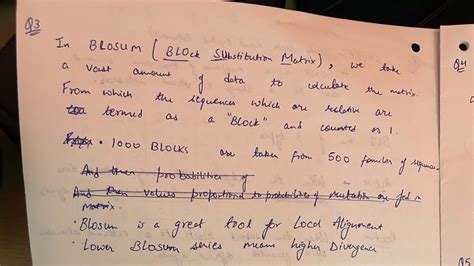 Q3
In BLOSUM (BLOck SUbstitution Matrix), we take
a vast amount of data to calculate the matrix.
From which the sequences which are relative are
termed as a "Block" and counted as 1.
• 1000 BLOCKS are taken from 500 families of sequences
And then probabilities of
And then values proportional to probabilities of mutation are fed in
Matrix.
• Blosum is a great tool for Local Alignment
• Lower Blosum series mean higher Divergence
Q4
Q5